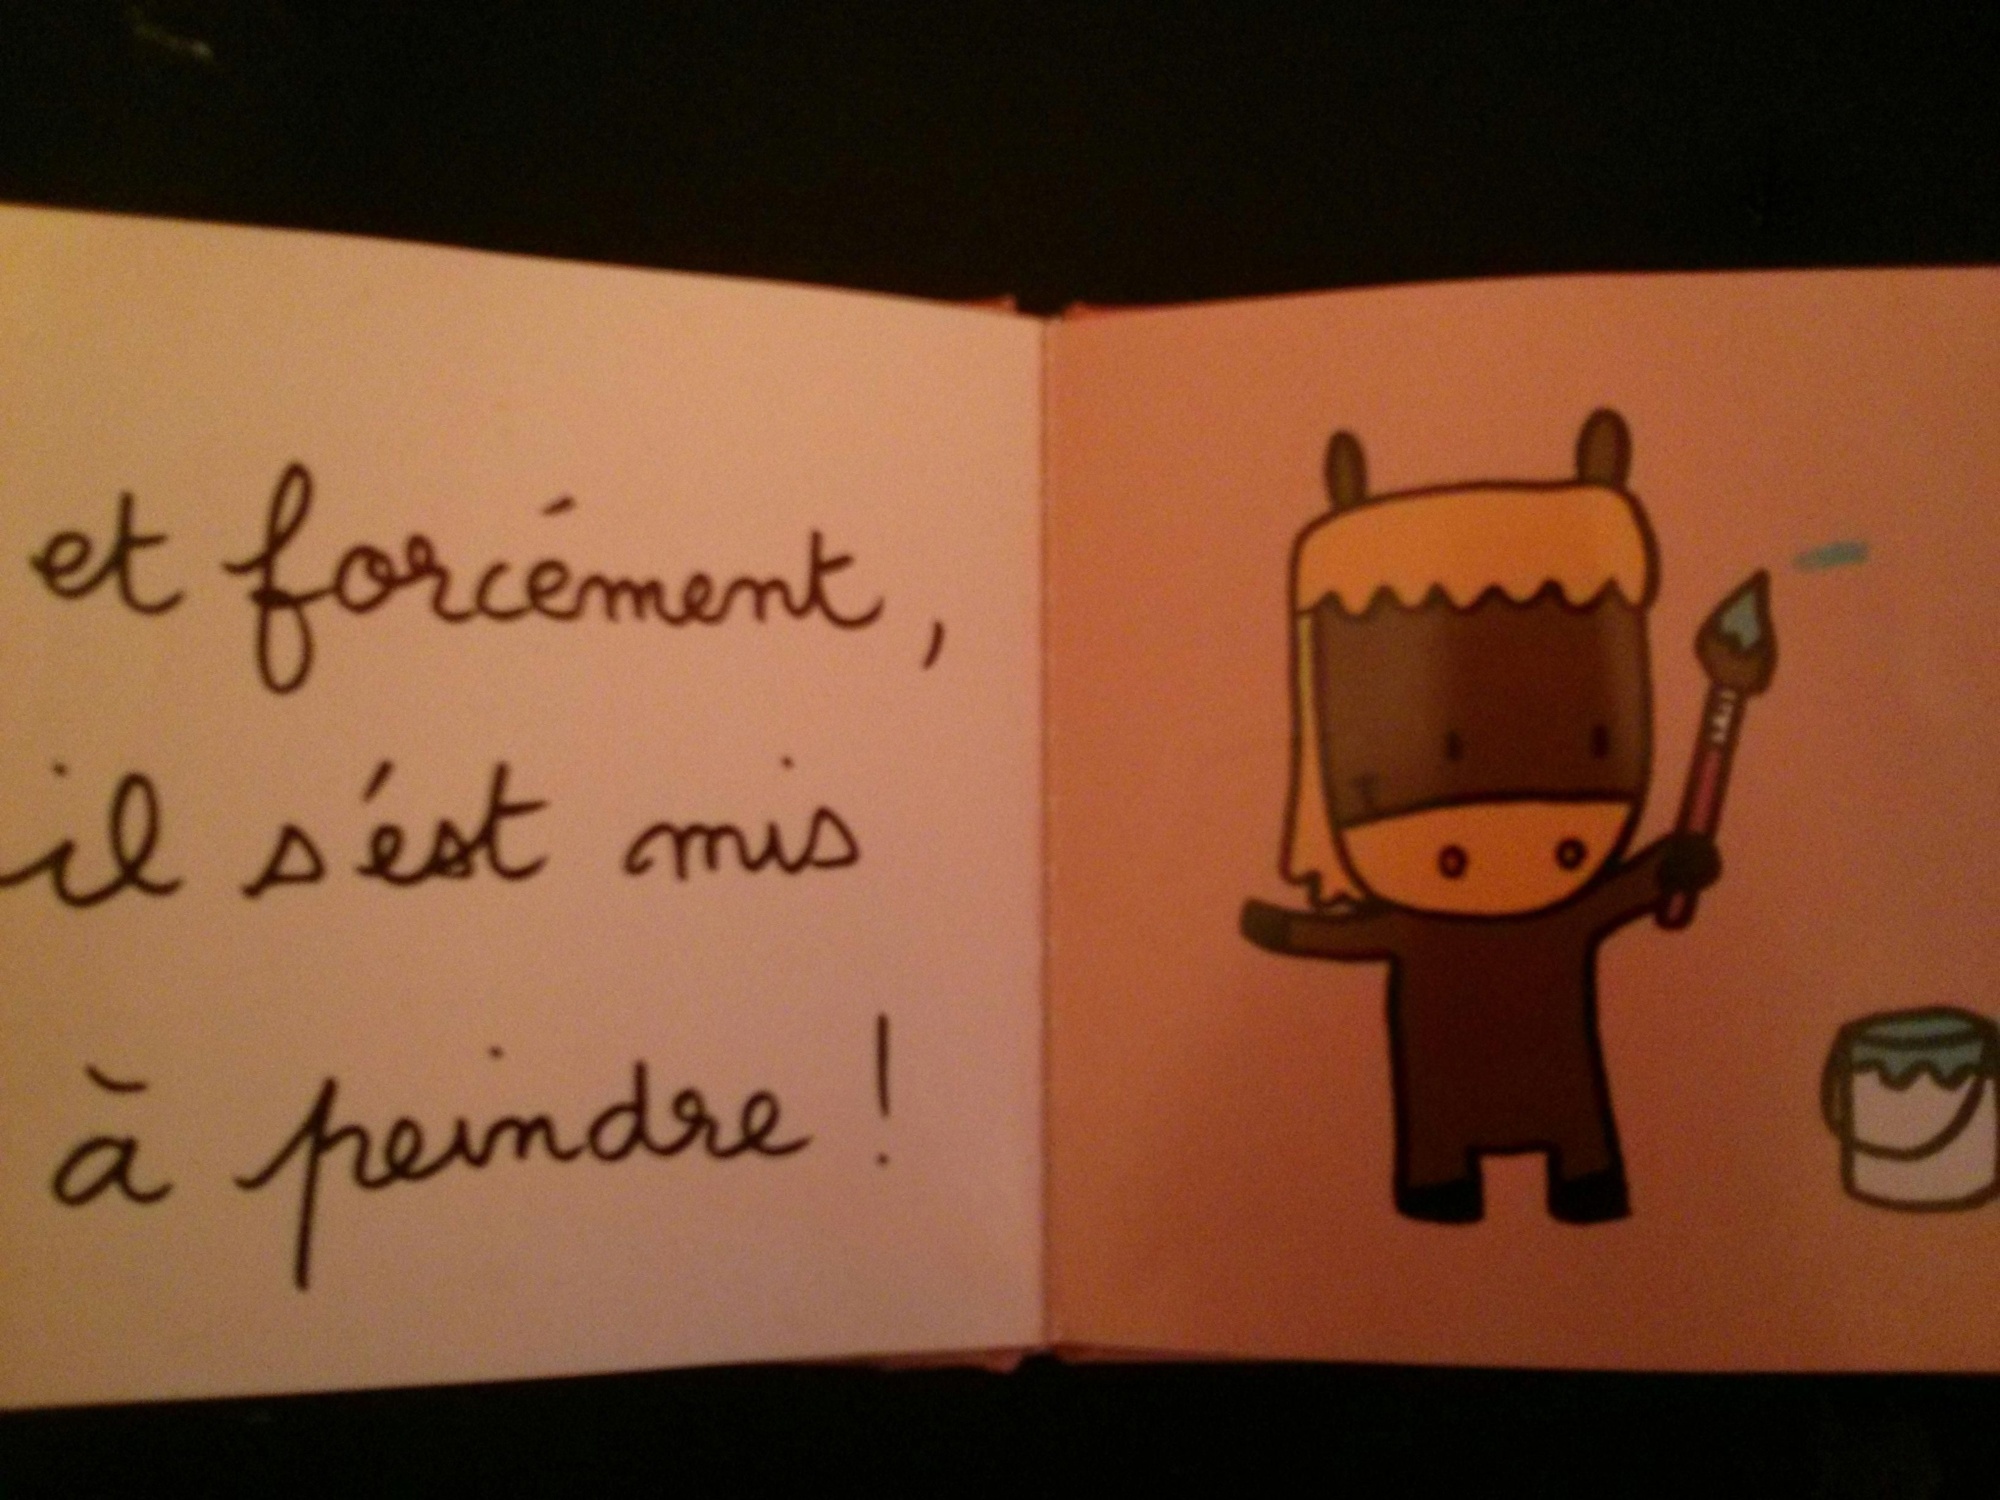 et forcément,
il s'est mis
à peindre !